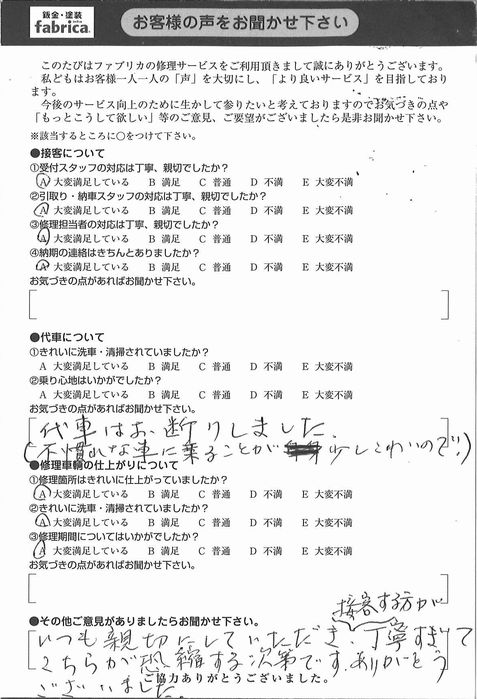 鈑金・塗装
fabrica.
お客様の声をお聞かせ下さい
このたびはファブリカの修理サービスをご利用頂きまして誠にありがとうございます。
私どもはお客様一人一人の「声」を大切にし、「より良いサービス」を目指しており
ます。
今後のサービス向上のために生かして参りたいと考えておりますのでお気づきの点や
「もっとこうして欲しい」等のご意見、ご要望がございましたら是非お聞かせ下さい。
※該当するところに○をつけて下さい。
●接客について
①受付スタッフの対応は丁寧、親切でしたか?
A 大変満足している B 満足 C 普通 D 不満 E 大変不満
②引取り・納車スタッフの対応は丁寧、親切でしたか?
A 大変満足している B 満足 C 普通 D 不満 E 大変不満
③修理担当者の対応は丁寧、親切でしたか?
A 大変満足している B 満足 C 普通 D 不満 E 大変不満
④納期の連絡はきちんとありましたか?
A 大変満足している B 満足 C 普通 D 不満 E 大変不満
お気づきの点があればお聞かせ下さい。
●代車について
①きれいに洗車・清掃されていましたか?
A 大変満足している B 満足 C 普通 D 不満 E 大変不満
②乗り心地はいかがでしたか?
A 大変満足している B 満足 C 普通 D 不満 E 大変不満
お気づきの点があればお聞かせ下さい。
代車はお断りしました。
(不慣れな車に乗ることが少しこわいので!!)
●修理車輌の仕上がりについて
①修理箇所はきれいに仕上がっていましたか?
A 大変満足している B 満足 C 普通 D 不満 E 大変不満
②きれいに洗車・清掃されていましたか?
A 大変満足している B 満足 C 普通 D 不満 E 大変不満
③修理期間についてはいかがでしたか?
A 大変満足している B 満足 C 普通 D 不満 E 大変不満
お気づきの点があればお聞かせ下さい。
●その他ご意見がありましたらお聞かせ下さい。
接客する方が
いつも親切にしていただき、丁寧すぎて
こちらが恐縮する次第です。ありがとう
ございました。
ご協力ありがとうございました。